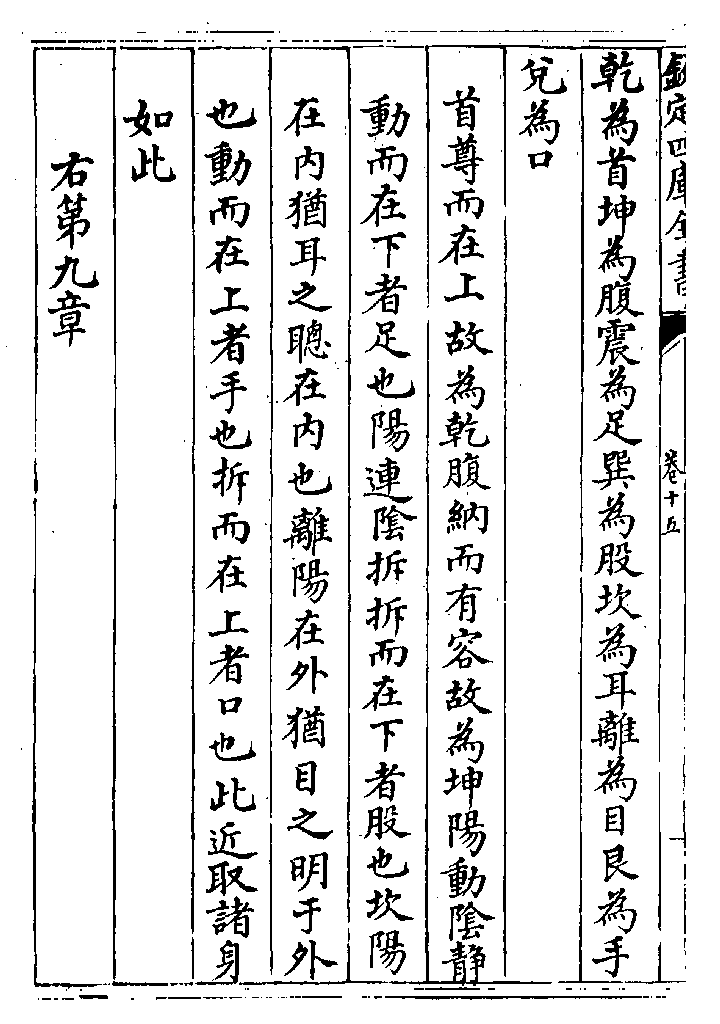 欽定四庫全書
卷十五
乾為首坤為腹震為足巽為股坎為耳離為目艮為手
兌為口
首尊而在上故為乾腹納而有容故為坤陽動陰静
動而在下者足也陽連陰拆拆而在下者股也坎陽
在内猶耳之聰在内也離陽在外猶目之明于外
也動而在上者手也拆而在上者口也此近取諸身
如此
右第九章